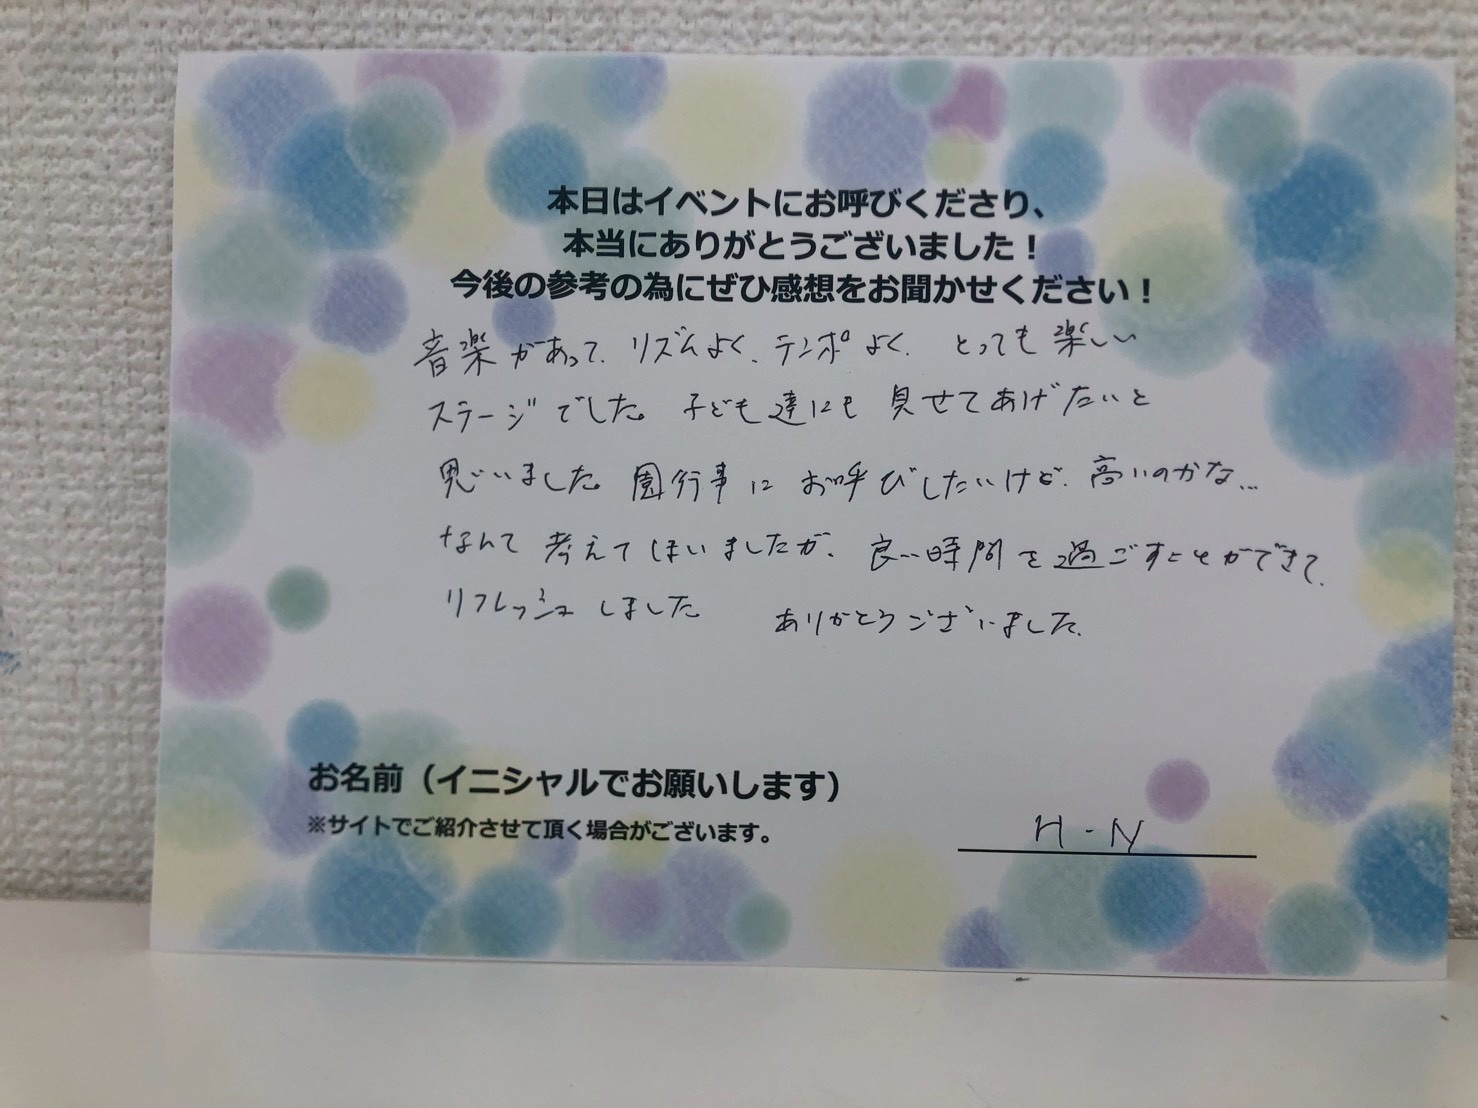 本日はイベントにお呼びくださり、
本当にありがとうございました！
今後の参考の為にぜひ感想をお聞かせください！
音楽があって、リズムよく、テンポよく、とっても楽しい
ステージでした。子ども達にも見せてあげたいと
思いました。園行事にお呼びしたいけど、高いのかな…
なんて考えてしまいましたが、良い時間を過ごすことができて、
リフレッシュしました ありがとうございました。
お名前（イニシャルでお願いします）
※サイトでご紹介させて頂く場合がございます。
H-N